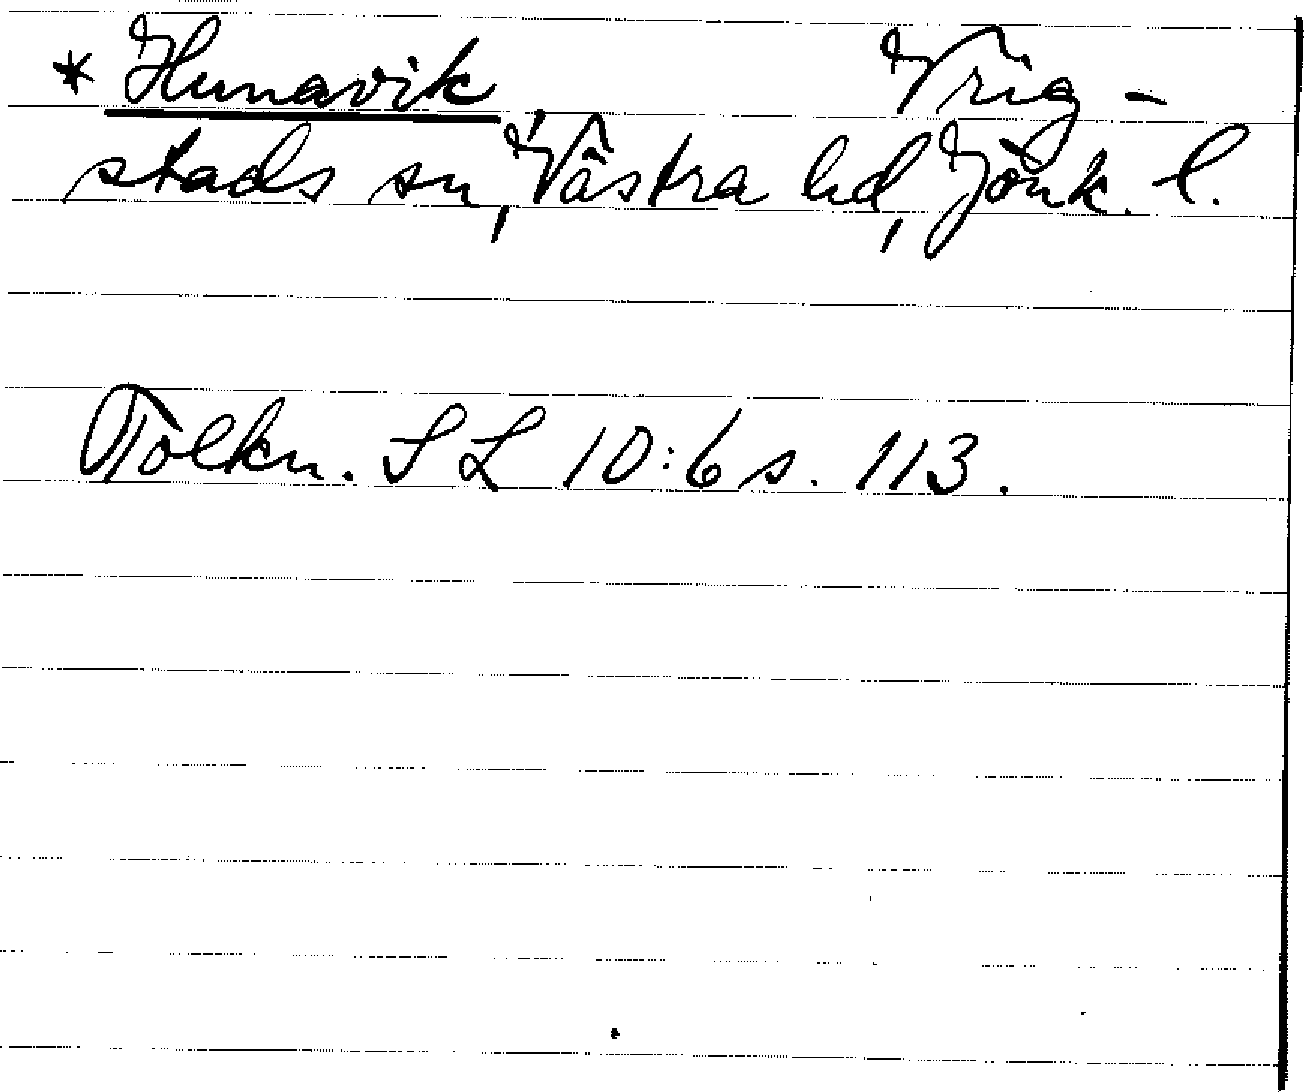 * Hunavik, Vrig-
stads sn, Västra hd, Jönk. l.
Tolkn. SL 10:6 s. 113.